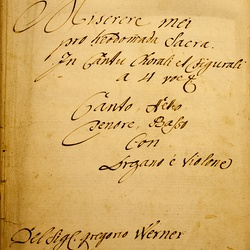 Miserere mei
pro hebdomada Sacra.
In Cantu Chorali et figurali
a 4 voc:
Canto Alto
Tenore, Basso
Con
Organo è Violone
Del Sig: Gregorio Werner